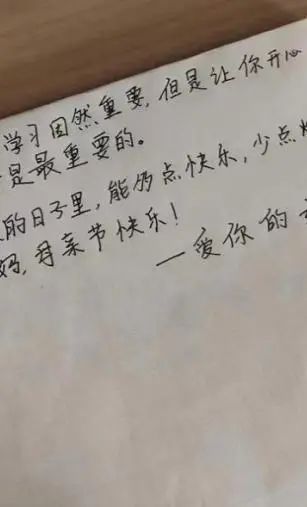 学习固然重要,但是让你开心
是最重要的。
的日子里,能多点快乐,少点
妈,母亲节快乐!
—爱你的